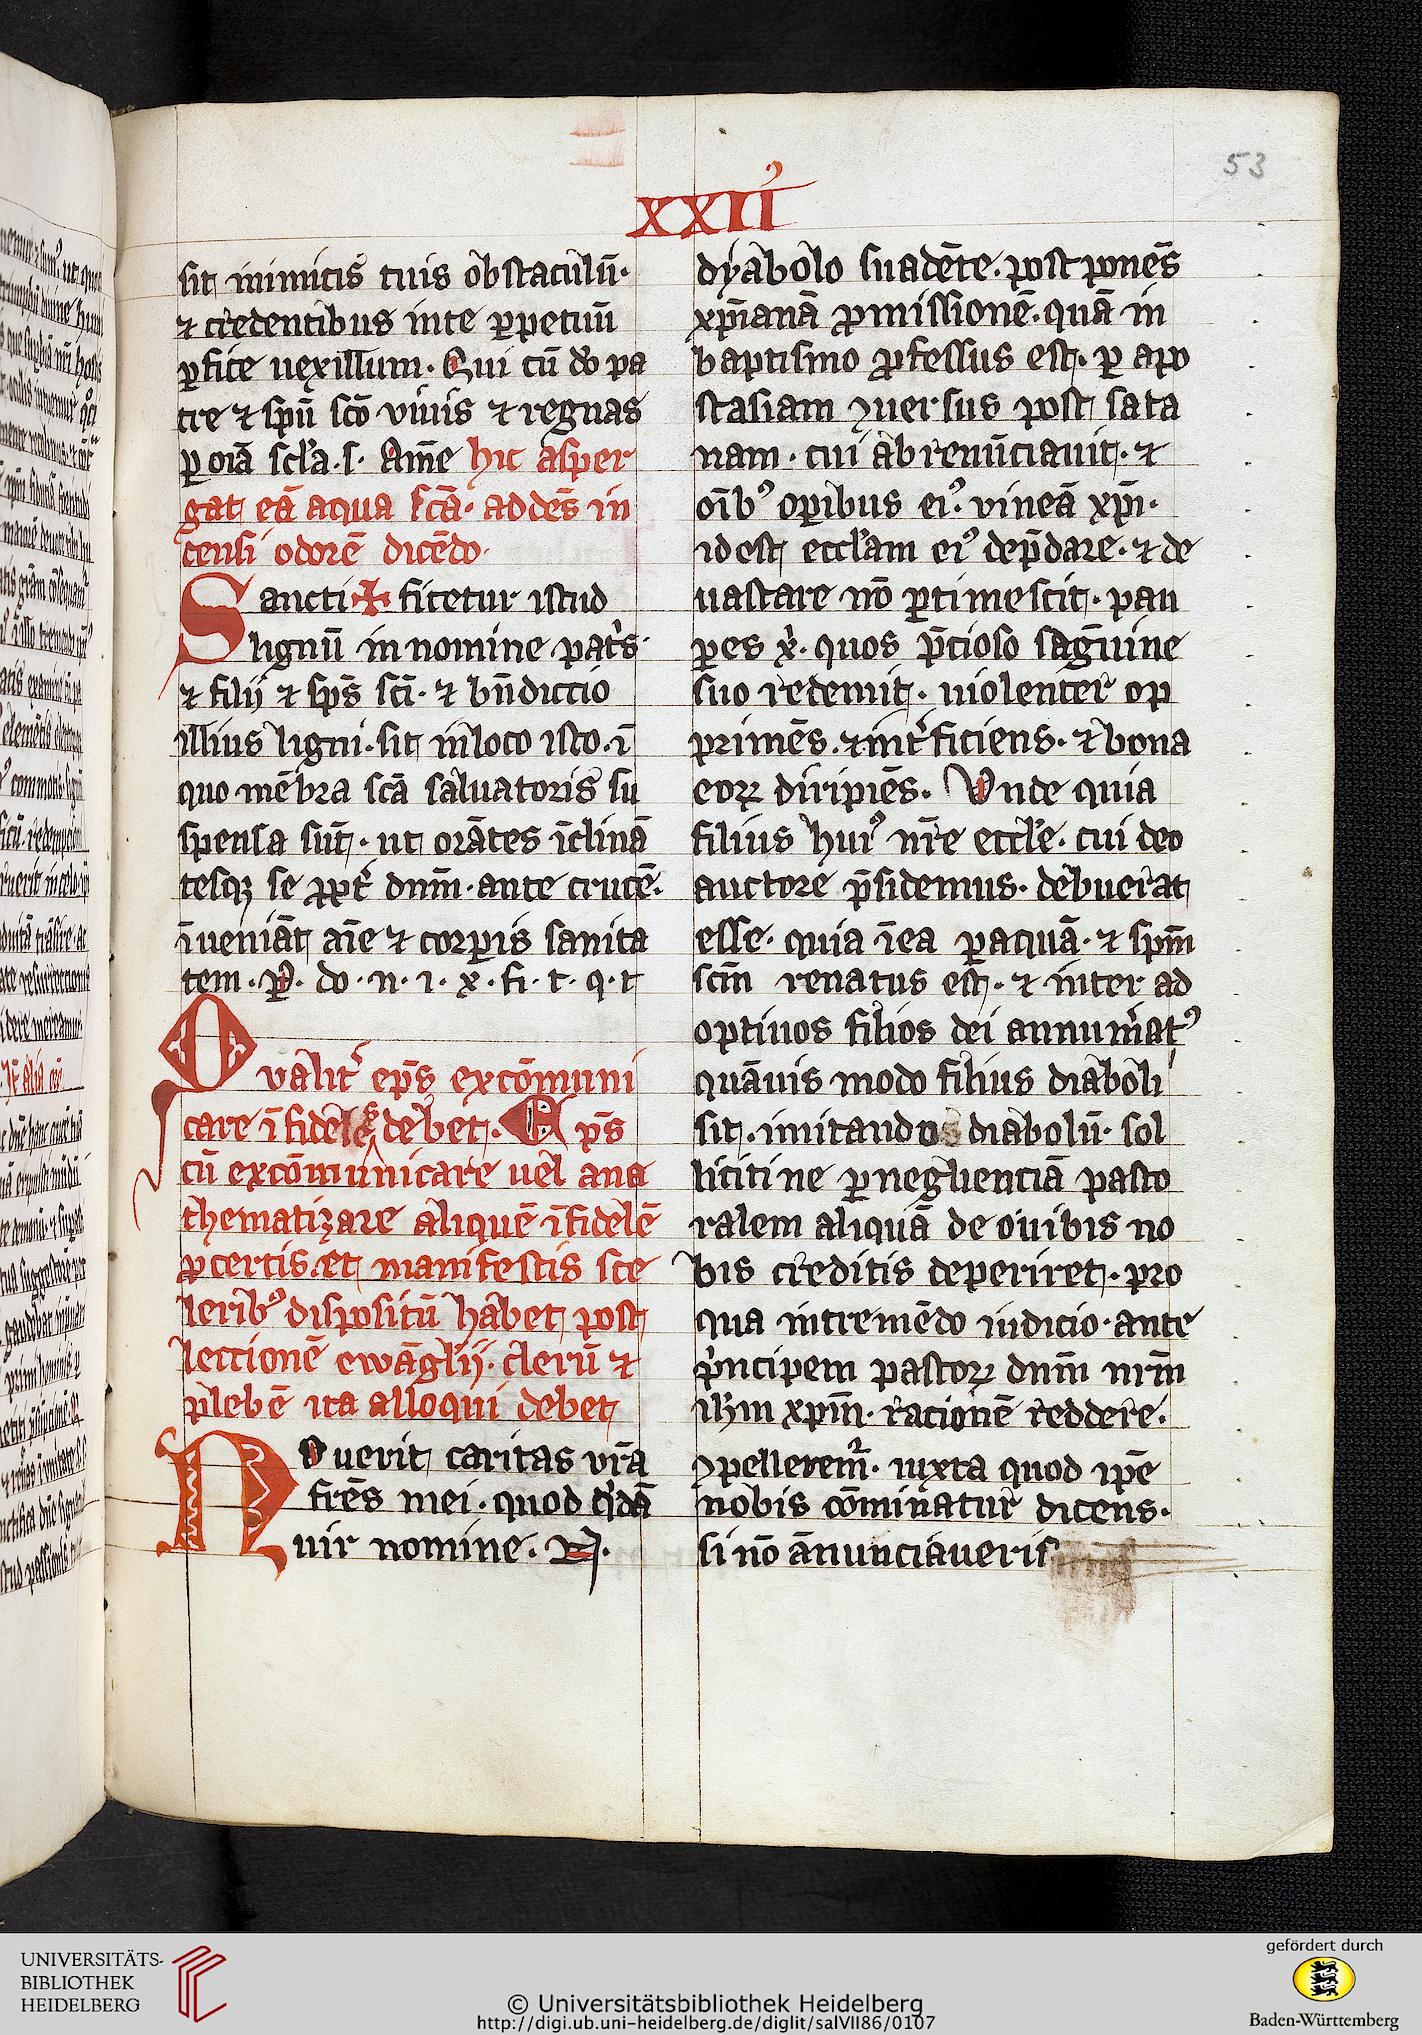 53
XXII
sit inimicis tuis obstaculū·
⁊ credentibus inte ꝑpetuū
ꝑfice uexillum. Qui cū dō pa
tre ⁊ spū scō viuis ⁊ regnas
ꝑ oīa scľa. s. Amē hic asper
gat eā aqua scā· addēs in
censi odorē dicēdo·
Sancti✠ficetur istud
lignū in nomine patͥs·
⁊ filij ⁊ sp̄s scī· ⁊ bn̄dictio
illius ligni· sit inloco isto· ī
quo mēbra scā saluatoris su
spensa sūt· ut orātes īclinā
tesqꝫ se ꝓpt̾ dn̄m· ante crucē·
īueniāt aīe ⁊ corꝑis sanita
tem· P̱· do· n· i· x· fi· t· q· t
Qvalit̾ ep̄s excōmuni
care īfideles debet. Ep̄s
cū excōmunicare uel ana
thematizare aliquē īfidelē
ꝓ certis. et manifestis sce
lerib⁹ dispositū habet post
lectionē ewāglij· clerū ⁊
plebē ita alloqui debet
Nouerit caritas vr̄a
fr̄es mei· quod qͥdā
uir nomine· N·
dyabolo suadēte· postponēs
xp̄ianā ꝓmissionē· quā in
baptismo ꝓfessus est· ꝑ apo
stasiam ꝯuersus post sata
nam· cui abrenūciauit· ⁊
oīb⁹ oꝑibus ei⁹· vineā xp̄i·
id est eccľam ei⁹ dep̄dare· ⁊ de
uastare nō ꝑtimescit· pau
ꝑes x̄· quos p̄cioso sāguine
suo redemit· uiolenter op
primēs· ⁊ int̾ficiens· ⁊ bona
eoꝝ diripiēs· Vnde quia
filius hui⁹ nr̄e eccľe· cui deo
auctore p̄sidemus· debuerat
esse· quia īea ꝑ aquā· ⁊ spm̄
scm̄ renatus est· ⁊ inter ad
optiuos filios dei annum̾at⁹
quāuis modo filius diaboli
sit· imitando diabolū· sol
licitine ꝑ neglienciā pasto
ralem aliquā de ouibis no
bis creditis deperiret· pro
qua intremēdo iudicio· ante
pͥncipem pastoꝝ dnm̄ nrm̄
ihm xpm̄· racionē reddere·
ꝯpelleremͬ· iuxta quod ip̄e
nobis cōminatur dicens·
si nō ānunciaueris
UNIVERSITÄTS-
BIBLIOTHEK
HEIDELBERG
© Universitätsbibliothek Heidelberg
http://digi.ub.uni-heidelberg.de/diglit/salVII86/0107
gefördert durch
Baden-Württemberg